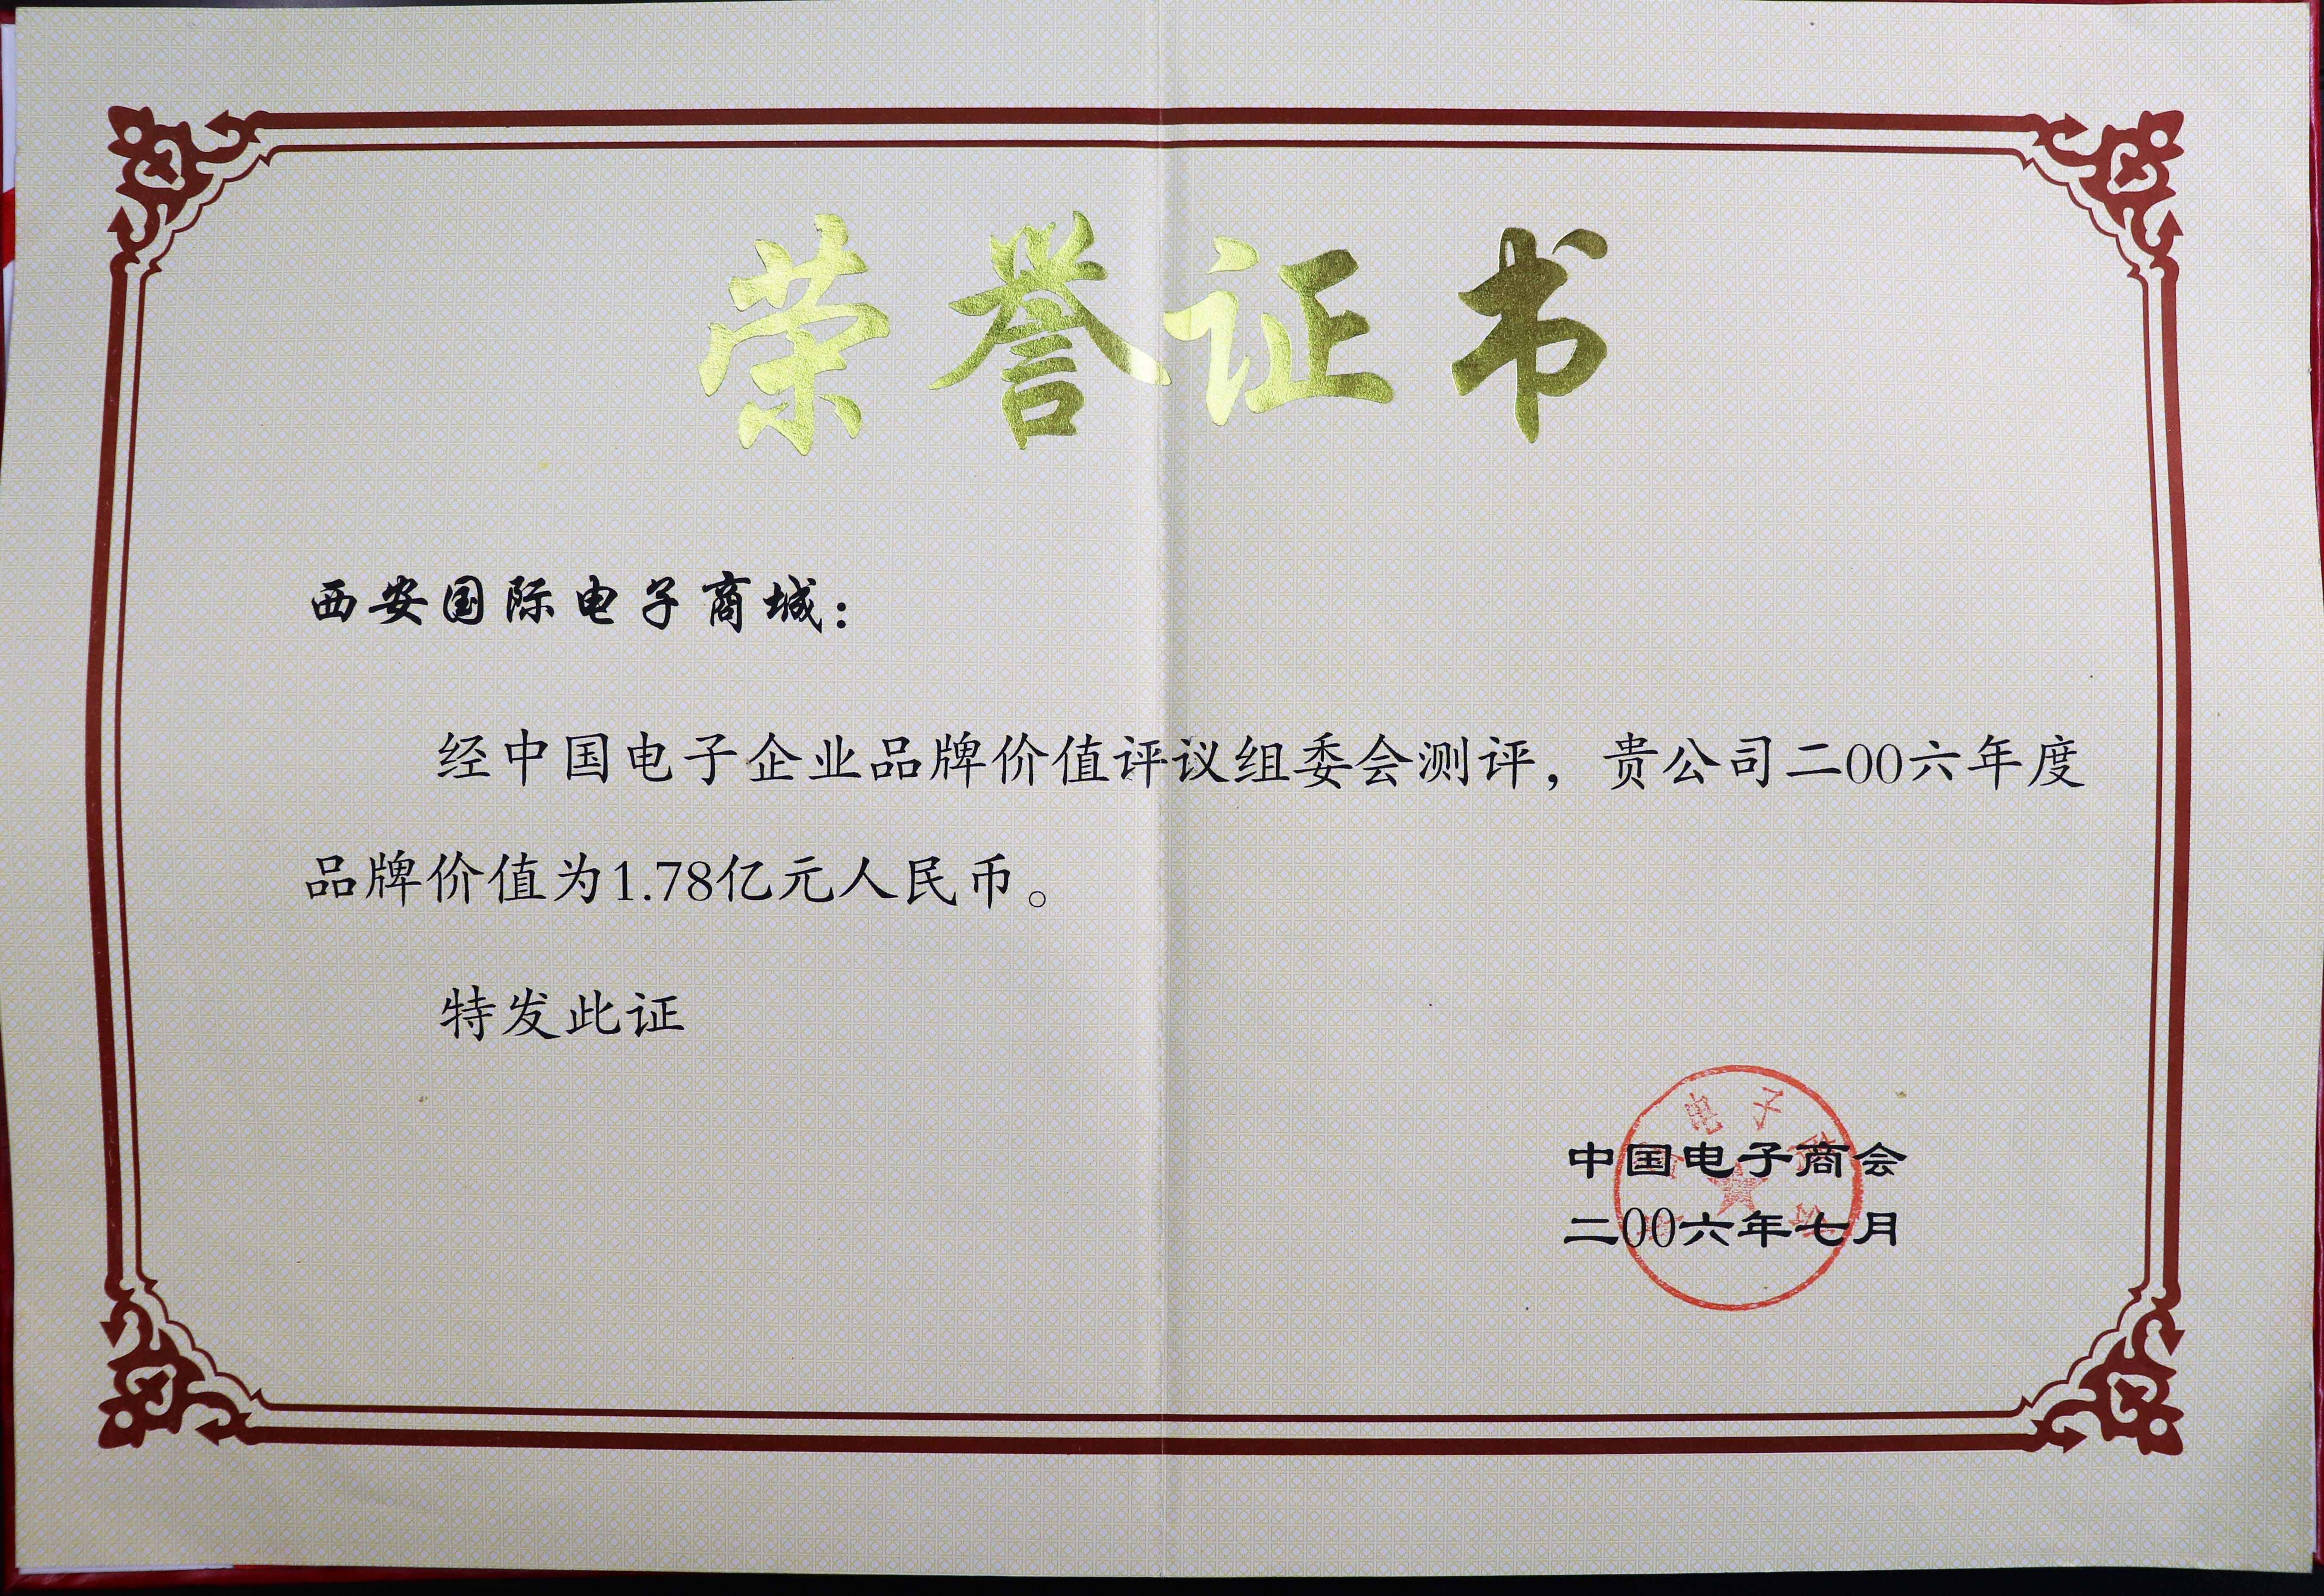 荣誉证书
西安国际电子商城：
经中国电子企业品牌价值评议组委会测评，贵公司二00六年度
品牌价值为1.78亿元人民币。
特发此证
电子
中国电子商会
二00六年七月